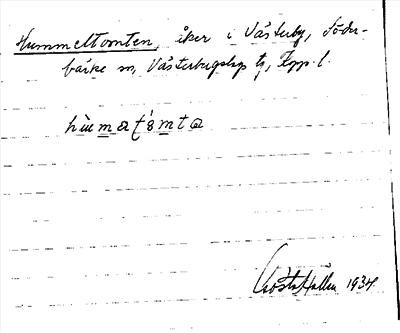 Hummeltomten, åker i Västerby, Söder-
bärke sn, Västerbergslags tg, Kopp. l.
Gösta Hallén 1934.